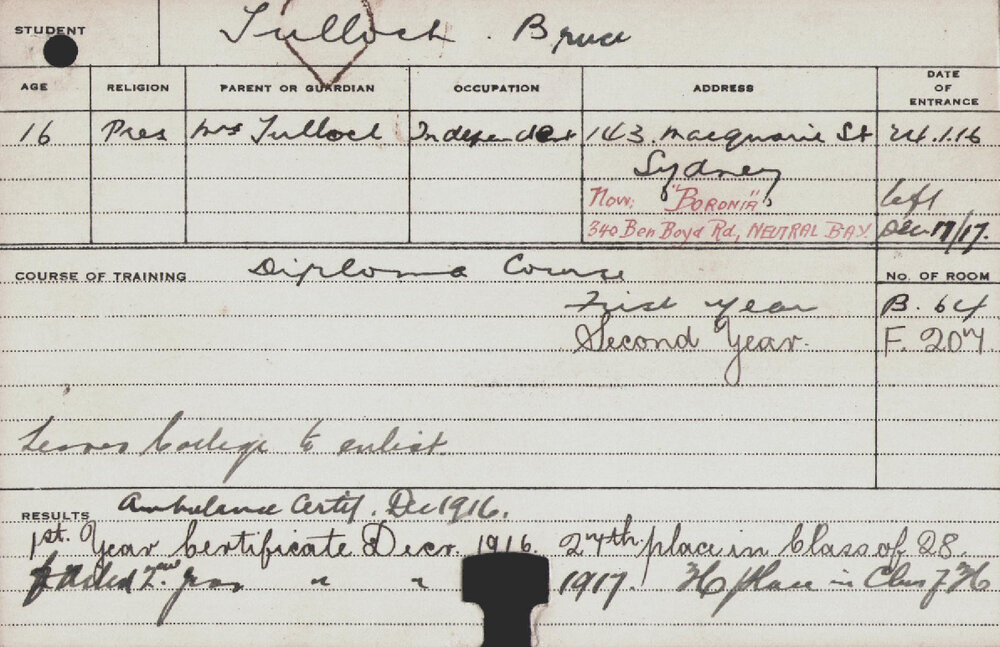 STUDENT Tulloch. Bruce
AGE RELIGION PARENT OR GUARDIAN OCCUPATION ADDRESS DATE OF ENTRANCE
16 Pres Mrs Tulloch Independent 143. Macquarie St 24.1.16
Sydney
Now: "BORONIA" left
340 Ben Boyd Rd, NEUTRAL BAY. Dec 17/17.
COURSE OF TRAINING Diploma Course No. OF ROOM
First year B. 64
Second Year. F. 207
Leaves College to enlist
RESULTS Ambulance Certif. Dec 1916.
1st. Year Certificate Decr. 1916. 27th place in Class of 28.
2nd year " " 1917. place in Class of